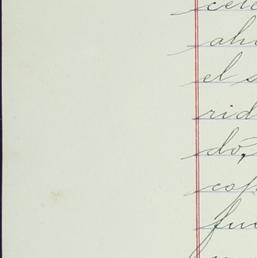 cele
aho
el s
rid
do,
cop
fue